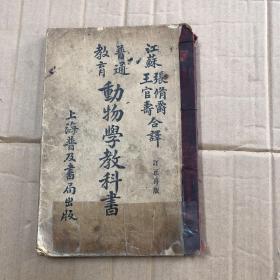 江蘇張脩爵王官壽合譯
訂正再版
普通教育動物學教科書
上海普及書局出版